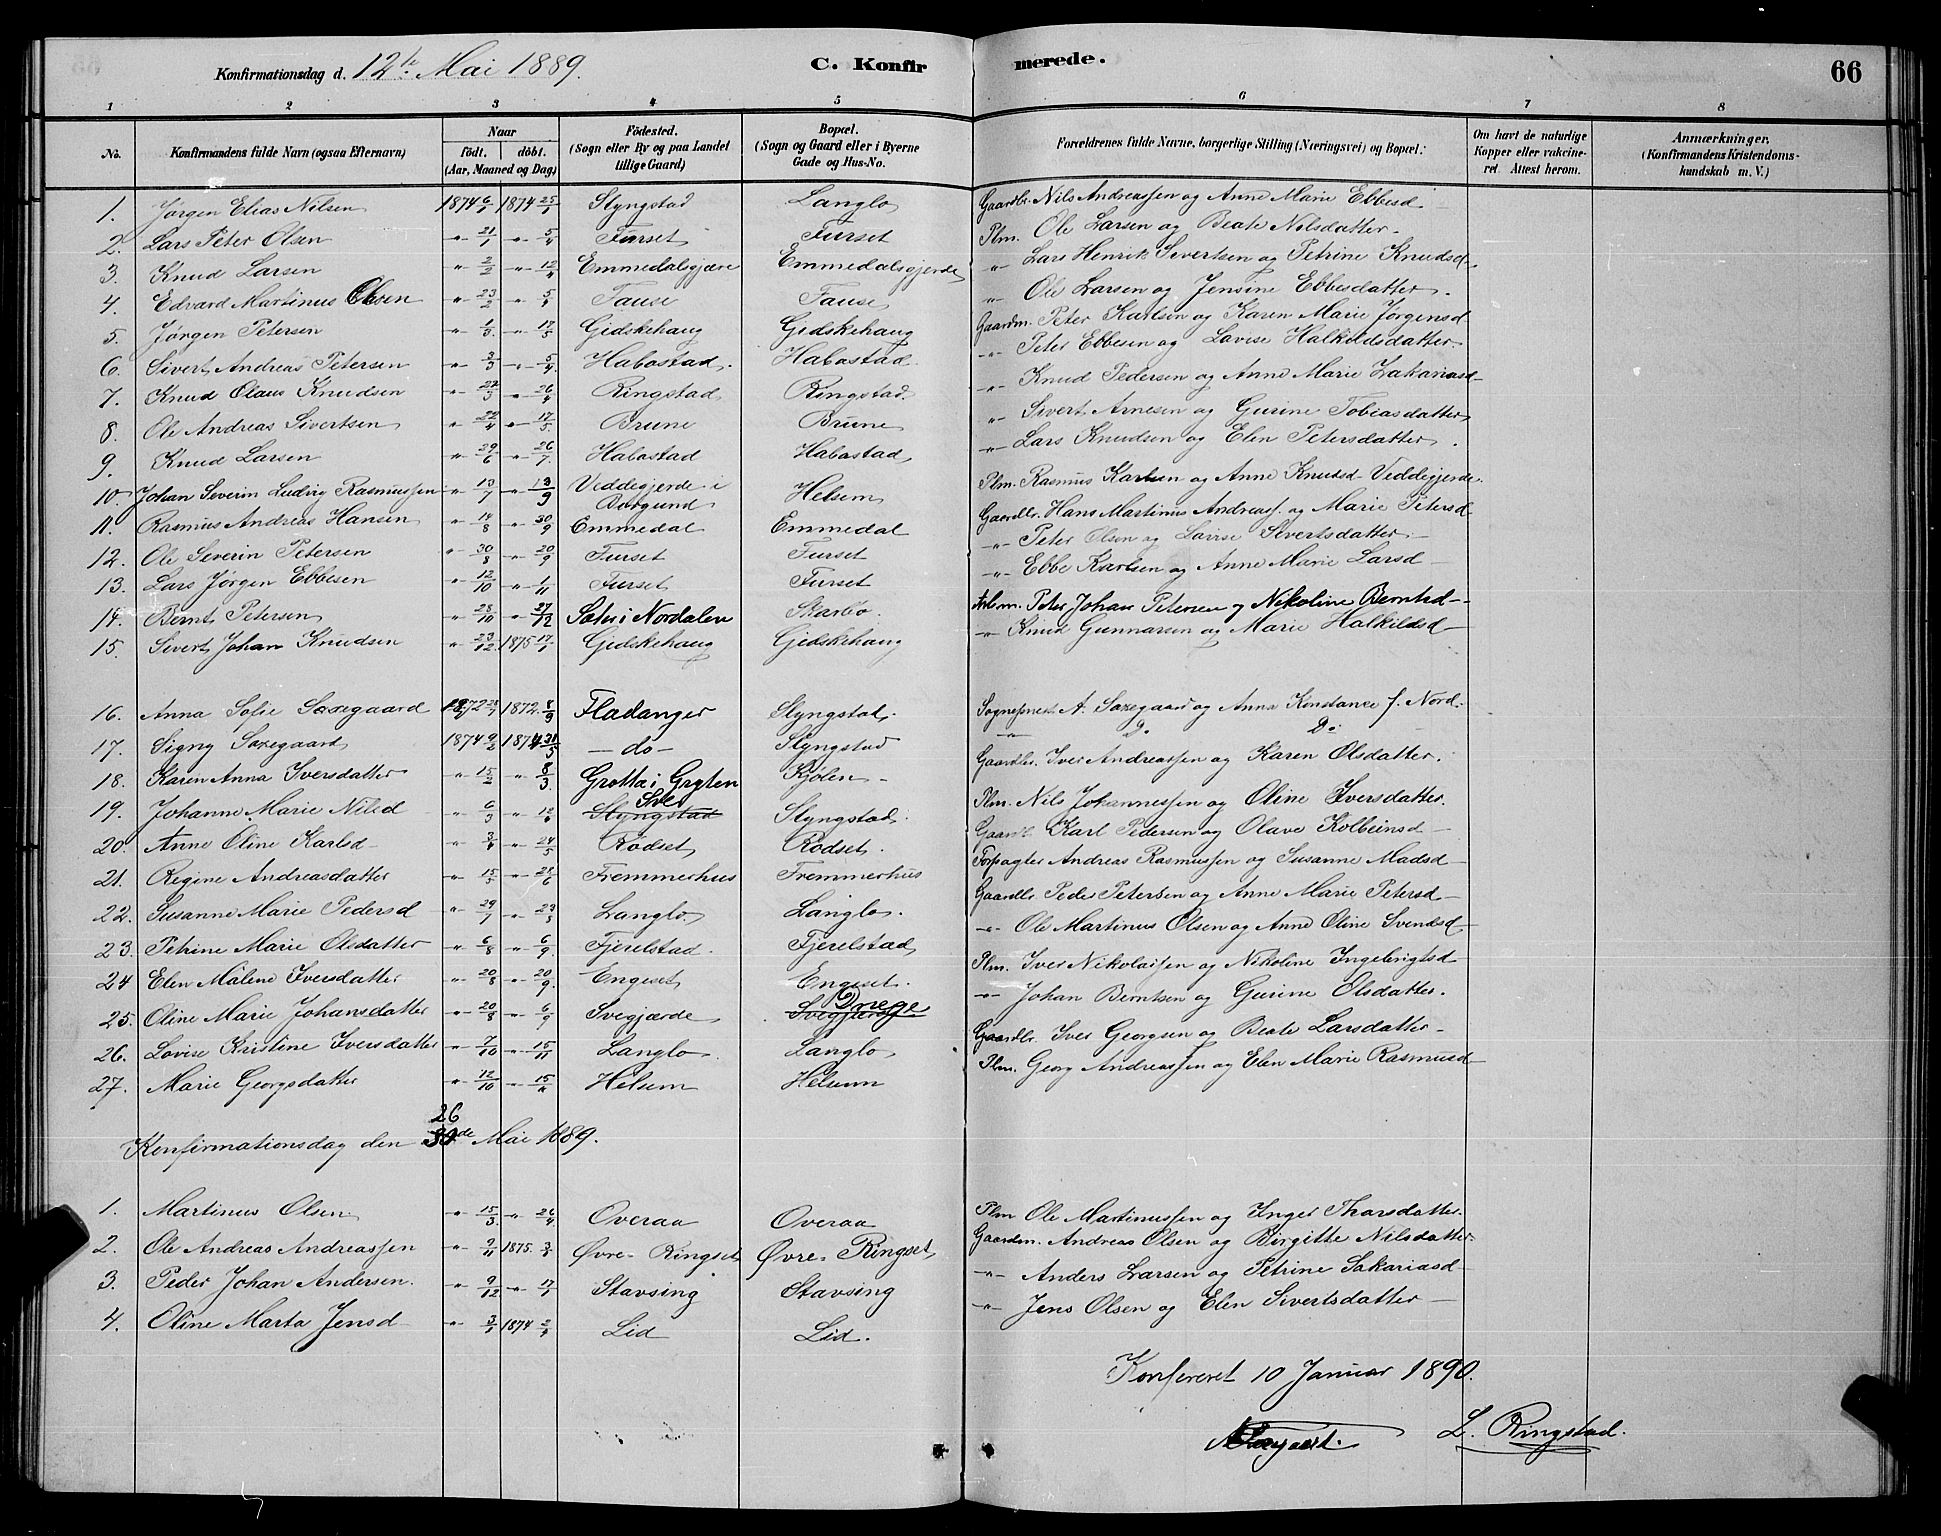 Konfirmationsdag d. 12te Mai 1889. C. Konfirmerede. 66
1 2 3 4 5 6 7 8
No. Konfirmandens fulde Navn (ogsaa Efternavn) Naar födt. döbt. (Aar, Maaned og Dag) Födested. (Sogn eller By og paa Landet tillige Gaard) Bopæl. (Sogn og Gaard eller i Byerne Gade og Hus-No. Forældrenes fulde Navne, borgerlige Stilling (Næringsvei) og Bopæl. Om havt de naturlige Kopper eller vakcineret. Attest herom. Anmærkninger. (Konfirmandens Kristendomskundskab m. V.)
1. Jørgen Elias Nilsen 1874 6/1 1874 25/1 Slyngstad Langlo Gaardbr. Nils Andreassen og Anne Marie Ebbesd
2. Lars Peter Olsen " 21/1 " 5/4 Furset Furset Plm. Ole Larsen og Beate Nilsdatter
3. Knud Larsen " 2/2 " 12/4 Emmedalsgjære Emmedalsgjerde " Lars Henrik Sivertsen og Petrine Knudsd
4. Edvard Martinus Olsen " 23/2 " 5/4 Fause Fause " Ole Larsen og Jensine Ebbesdatter.
5. Jørgen Petersen " 1/3 " 17/5 Gidskehaug Gidskehaug Gaardm. Peter Karlsen og Karen Marie Jørgensd
6. Sivert Andreas Petersen " 3/3 " 5/4 Habostad. Habostad " Peter Ebbesen og Lovise Halkildsdatter
7. Knud Olaus Knudsen " 22/3 " 26/4 Ringstad Ringstad " Knud Pedersen og Anne Marie Zakariasd
8. Ole Andreas Sivertsen " 22/4 " 17/5. Brune Brune " Sivert Arnesen og Gurine Tobiasdatter
9. Knud Larsen " 29/6 " 26/7 Habostad Habostad " Lars Knudsen og Elen Petersdatter.
10. Johan Severin Ludvig Rasmussen " 13/7 " 13/9 Veddegjerde i Borgund Helsem Plm. Rasmus Karlsen og Anne Knudsd Veddegjerde.
11. Rasmus Andreas Hansen " 14/8 " 30/9 Emmedal Emmedal Gaardbr. Hans Martinus Andreass. og Marie Petersd
12. Ole Severin Petersen " 30/8 " 20/9 Furset Furset " Peter Olsen og Lovise Sivertsdatter
13. Lars Jørgen Ebbesen " 12/10 " 1/11 Furset Furset " Ebbe Karlsen og Anne Marie Larsd
14. Bernt Petersen " 28/10 " 27/12 Sæter i Nordalen Skarbø. Peter Johan Petersen og Nikoline Berntsd
15. Sivert Johan Knudsen " 23/12. 1875 17/1 Gidskehaug Gidskehaug " Knud Gunnarsen og Marie Halkildsd
16. Anna Sofie Saxegaard 1872 1872. 8/9 Fladanger Slyngstad. Sogneprest A. Saxegaard og Anna Konstance f. Nord.
17. Signy Saxegaard 1874 9/2 1874 31/5 — do — Slyngstad " Do Do
18. Karen Anna Iversdatter " 15/2 " 8/3. Grotta i Gryten Kjølen Gaardbr. Iver Andreassen og Karen Olsdatter.
19. Johanne Marie Nilsd " 6/3 " 12/4 Slyngstad Slyngstad. Plm. Nils Johannessen og Oline Iversdatter.
20. Anne Oline Karlsd " 3/4 " 24/5 Rødset Rødset. Gaardb. Karl Pedersen og Olave Kolbeinsd
21. Regine Andreasdatter " 15/5 " 21/6 Fremmerhus Fremmerhus Forpagter Andreas Rasmussen og Susanne Madsd
22. Susanne Marie Pedersd " 29/7 " 23/8 Langlo Langlo. Gaardbr. Peder Petersen og Anne Marie Petersd
23. Petrine Marie Olsdatter " 6/8 " 6/9. Fjerelstad. Fjerelstad " Ole Martinus Olsen og Anne Oline Svendsd
24 Elen Malene Iversdatter " 20/8 " 20/9. Engeset Engeset. Plm. Iver Nikolaisen og Nikoline Ingebrigtsd
25. Oline Marie Johansdatter " 20/8 " 6/9 Svegjærde Svegjerde " Johan Berntsen og Gurine Olsdatter.
26. Lovise Kristine Iversdatter " 7/10 " 15/11 Langlo Langlo Gaardbr. Iver Georgsen og Beate Larsdatter
27. Marie Georgsdatter " 12/10 " 15/11 Helsem Helsem Plm. Georg Andreassen og Elen Marie Rasmusd
26
Konfirmationsdag den de Mai 1889.
1. Martinus Olsen " 15/3. " 26/4. Overaa Overaa Plm Ole Martinussen og Inger Tharsdatter.
2. Ole Andreas Andreassen " 9/11 1875. 3/1. Øvre-Ringset Øvre-Ringset Gaardm. Andreas Olsen og Birgitte Nilsdatter
3. Peder Johan Andersen. " 9/12 " 17/1 Stavsing Stavsing " Anders Larsen og Petrine Sakariasd
4. Oline Marta Jensd " 3/1 1874 2/4 Lid Lid. " Jens Olsen og Elen Sivertsdatter
Konfereret 10 Januar 1890.
L. Ringstad.